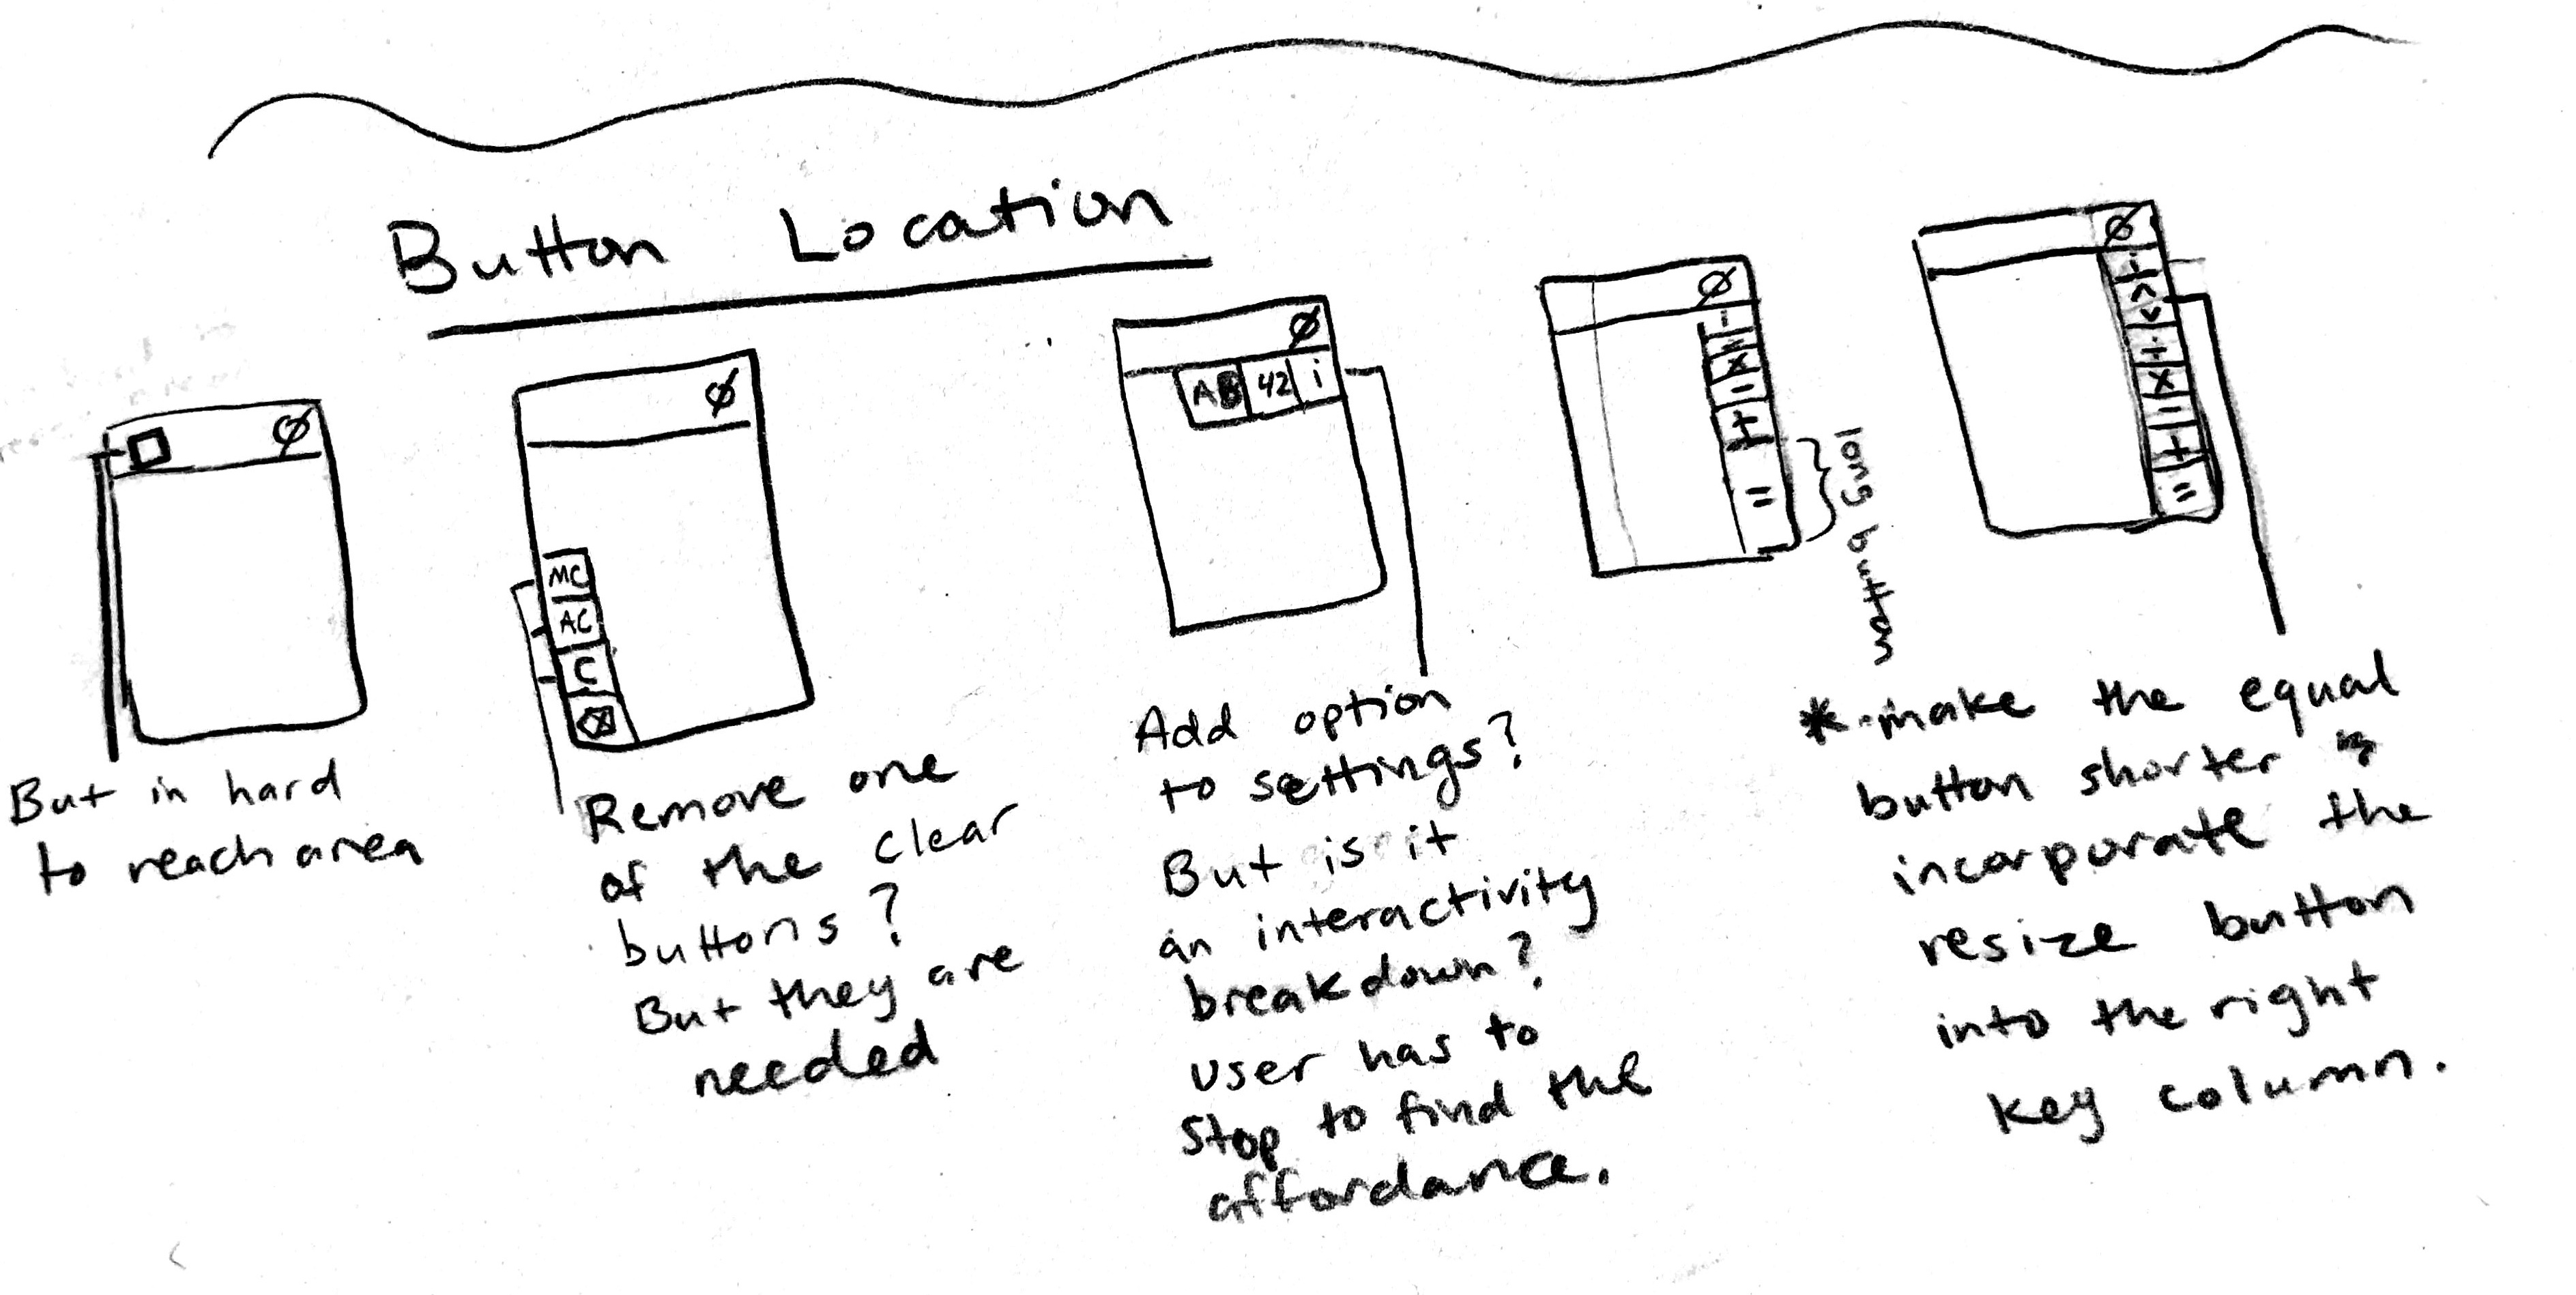 Button Location
Ø
But in hard
to reach area
Ø
MC
AC
C
Remove one
of the clear
buttons?
But they are
needed
Ø
AB 42 i
Add option
to settings?
But is it
an interactivity
breakdown?
user has to
stop to find the
affordance.
Ø
x
-
+
=
long button
Ø
i
÷
x
-
+
=
* make the equal
button shorter &
incorporate the
resize button
into the right
key column.